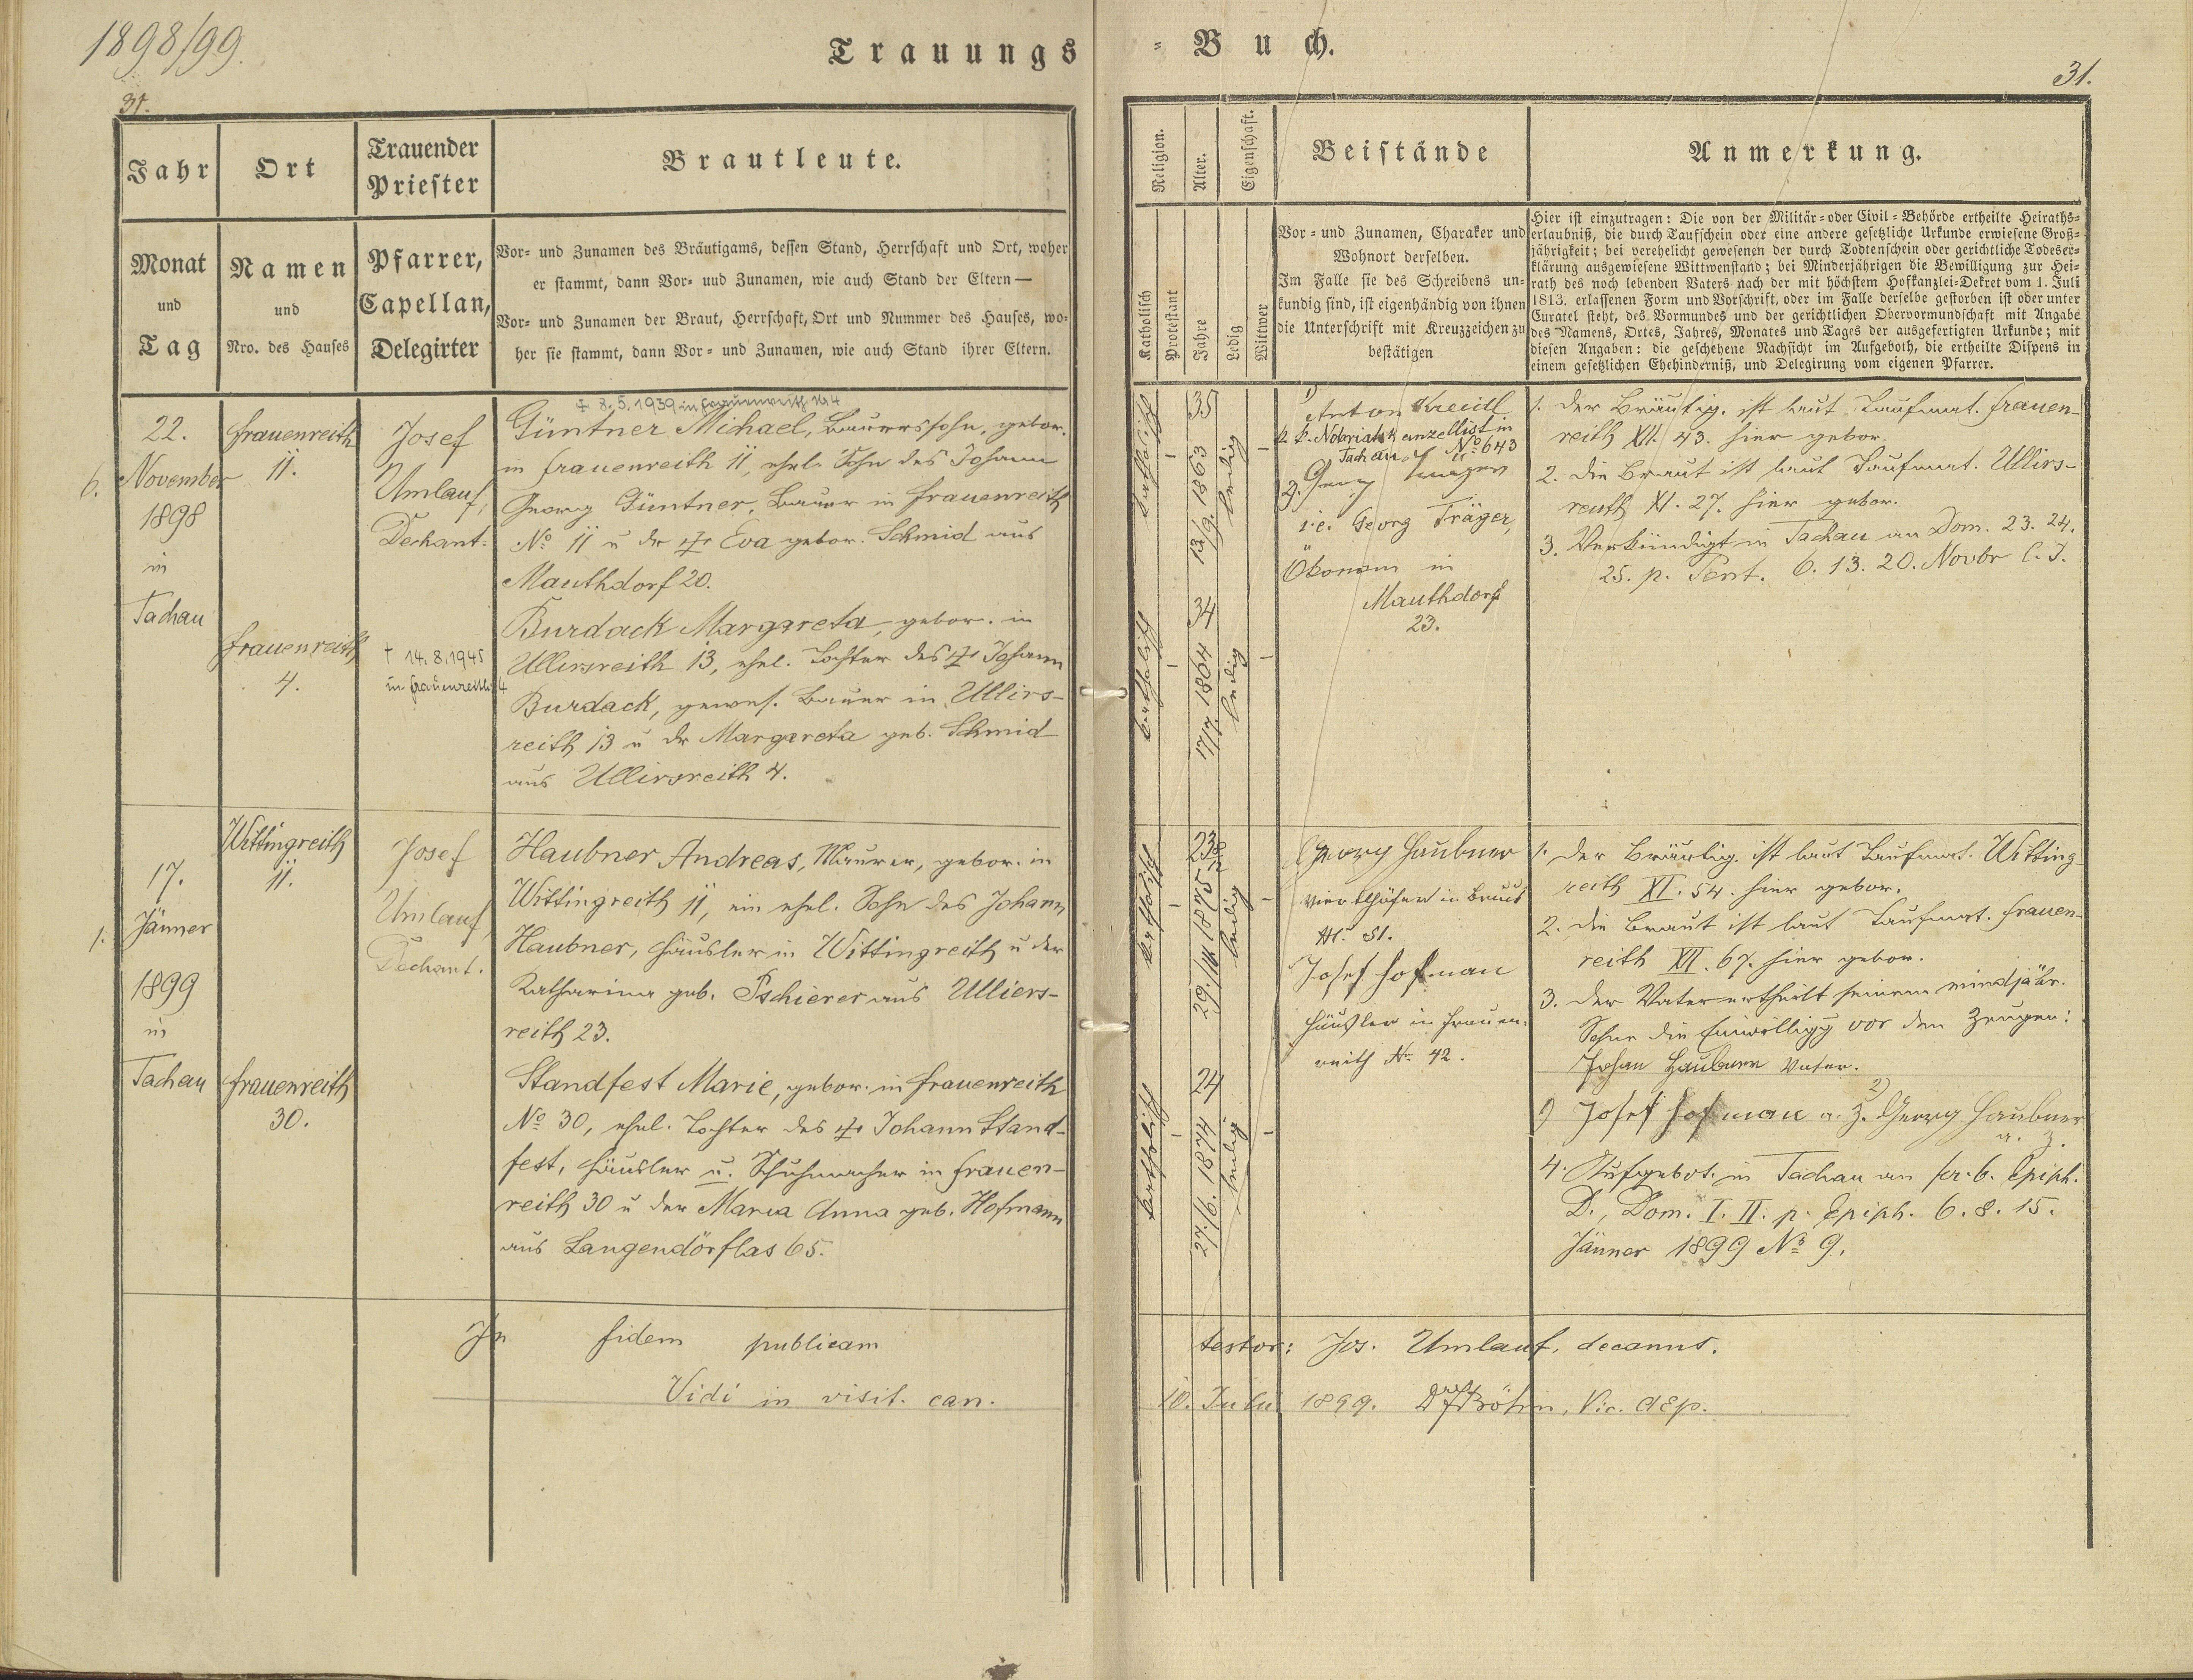 1898/99.
Trauungs
31.
Jahr
Ort
Trauender
Priester
Brautleute.
Monat
und
Tag
Namen
und
Nro. des Hauses
Pfarrer,
Capellan,
Delegirter
Vor- und Zunamen des Bräutigams, dessen Stand, Herrschaft und Ort, woher
er stammt, dann Vor- und Zunamen, wie auch Stand der Eltern —
Vor- und Zunamen der Braut, Herrschaft, Ort und Nummer des Hauses, wo-
her sie stammt, dann Vor- und Zunamen, wie auch Stand ihrer Eltern.
6.
22.
November
1898
in
Tachau
Frauenreith
11.
Frauenreith
4.
Josef
Umlauf,
Dechant.
† 14.8.1945
in Frauenreith 4
† 8.5.1939 in Frauenreith Nr 4
Güntner Michael, Bauerssohn, gebor.
in Frauenreith 11, ehel. Sohn des Johann
Georg Güntner, Bauer in Frauenreith
No 11 u der † Eva gebor. Schmid aus
Mauthdorf 20.
Burdack Margareta, gebor. in
Ullirsreith 13, ehel. Tochter des † Johann
Burdack, gewes. Bauer in Ullirs-
reith 13 u der Margareta geb. Schmid
aus Ullirsreith 4.
1.
17.
Jänner
1899
in
Tachau
Wittingreith
11.
Frauenreith
30.
Josef
Umlauf,
Dechant.
Haubner Andreas, Maurer, gebor. in
Wittingreith 11, ein ehel. Sohn des Johann
Haubner, Häusler in Wittingreith u der
Katharina geb. Pschierer aus Ulliers-
reith 23.
Standfest Marie, gebor. in Frauenreith
No 30, ehel. Tochter des † Johann Stand-
fest, Häusler u. Schuhmacher in Frauen-
reith 30 u der Maria Anna geb. Hofmann
aus Langendörflas 65.
In fidem publicam
Vidi in visit. can.
= Buch.
31.
Religion.
Alter.
Eigenschaft.
Beistände
Anmerkung.
Katholisch
Protestant
Jahre
Ledig
Wittwer
Vor- und Zunamen, Charakter und
Wohnort derselben.
Im Falle sie des Schreibens un-
kundig sind, ist eigenhändig von ihnen
die Unterschrift mit Kreuzzeichen zu
bestätigen
Hier ist einzutragen: Die von der Militär- oder Civil-Behörde ertheilte Heiraths-
erlaubniß, die durch Taufschein oder eine andere gesetzliche Urkunde erwiesene Groß-
jährigkeit; bei verehelicht gewesenen der durch Todtenschein oder gerichtliche Todeser-
klärung ausgewiesene Wittwenstand; bei Minderjährigen die Bewilligung zur Hei-
rath des noch lebenden Vaters nach der mit höchstem Hofkanzlei-Dekret vom 1. Juli
1813. erlassenen Form und Vorschrift, oder im Falle derselbe gestorben ist oder unter
Curatel steht, des Vormundes und der gerichtlichen Obervormundschaft mit Angabe
des Namens, Ortes, Jahres, Monates und Tages der ausgefertigten Urkunde; mit
diesen Angaben: die geschehene Nachsicht im Aufgeboth, die ertheilte Dispens in
einem gesetzlichen Ehehinderniß, und Delegirung vom eigenen Pfarrer.
katholisch
35
13/9. 1863
ledig
katholisch
34
17/7. 1864
ledig
1)
Anton Kreidl
k. k. Notariatskanzellist in
Tachau No 643
2. Georg
i.e. Georg Träger,
Ökonom in
Mauthdorf
23.
1. Der Bräutig. ist laut Taufmat. Frauen-
reith XII. 43. hier gebor.
2. Die Braut ist laut Taufmat. Ullirs-
reuth XI. 27. hier gebor.
3. Verkündigt in Tachau an Dom. 23. 24.
25. p. Pent. 6. 13. 20. Novbr l. J.
katholisch
23
29./11 1875
ledig
katholisch
24
27./6. 1874
ledig
Georg Haubner
Viertlhöfer in Bruck
Nr. 51.
Josef Hofman
Häusler in Frauen-
reith Nr 42.
1. Der Bräutig. ist laut Taufmat. Witting-
reith XI. 54. hier gebor.
2. Die Braut ist laut Taufmat. Frauen-
reith XII. 67. hier gebor.
3. Der Vater ertheilt seinem mindjähr.
Sohne die Einwilligg vor den Zeugen:
Johan Haubner Vater.
1) Josef Hofman a. Z. 2) Georg Haubner
a. Z.
4. Aufgebot. in Tachau an fer. 6. Epiph.
D., Dom. I. II. p. Epiph. 6. 8. 15.
Jänner 1899 No 9.
testor: Jos. Umlauf, decanus.
10. Juli 1899.